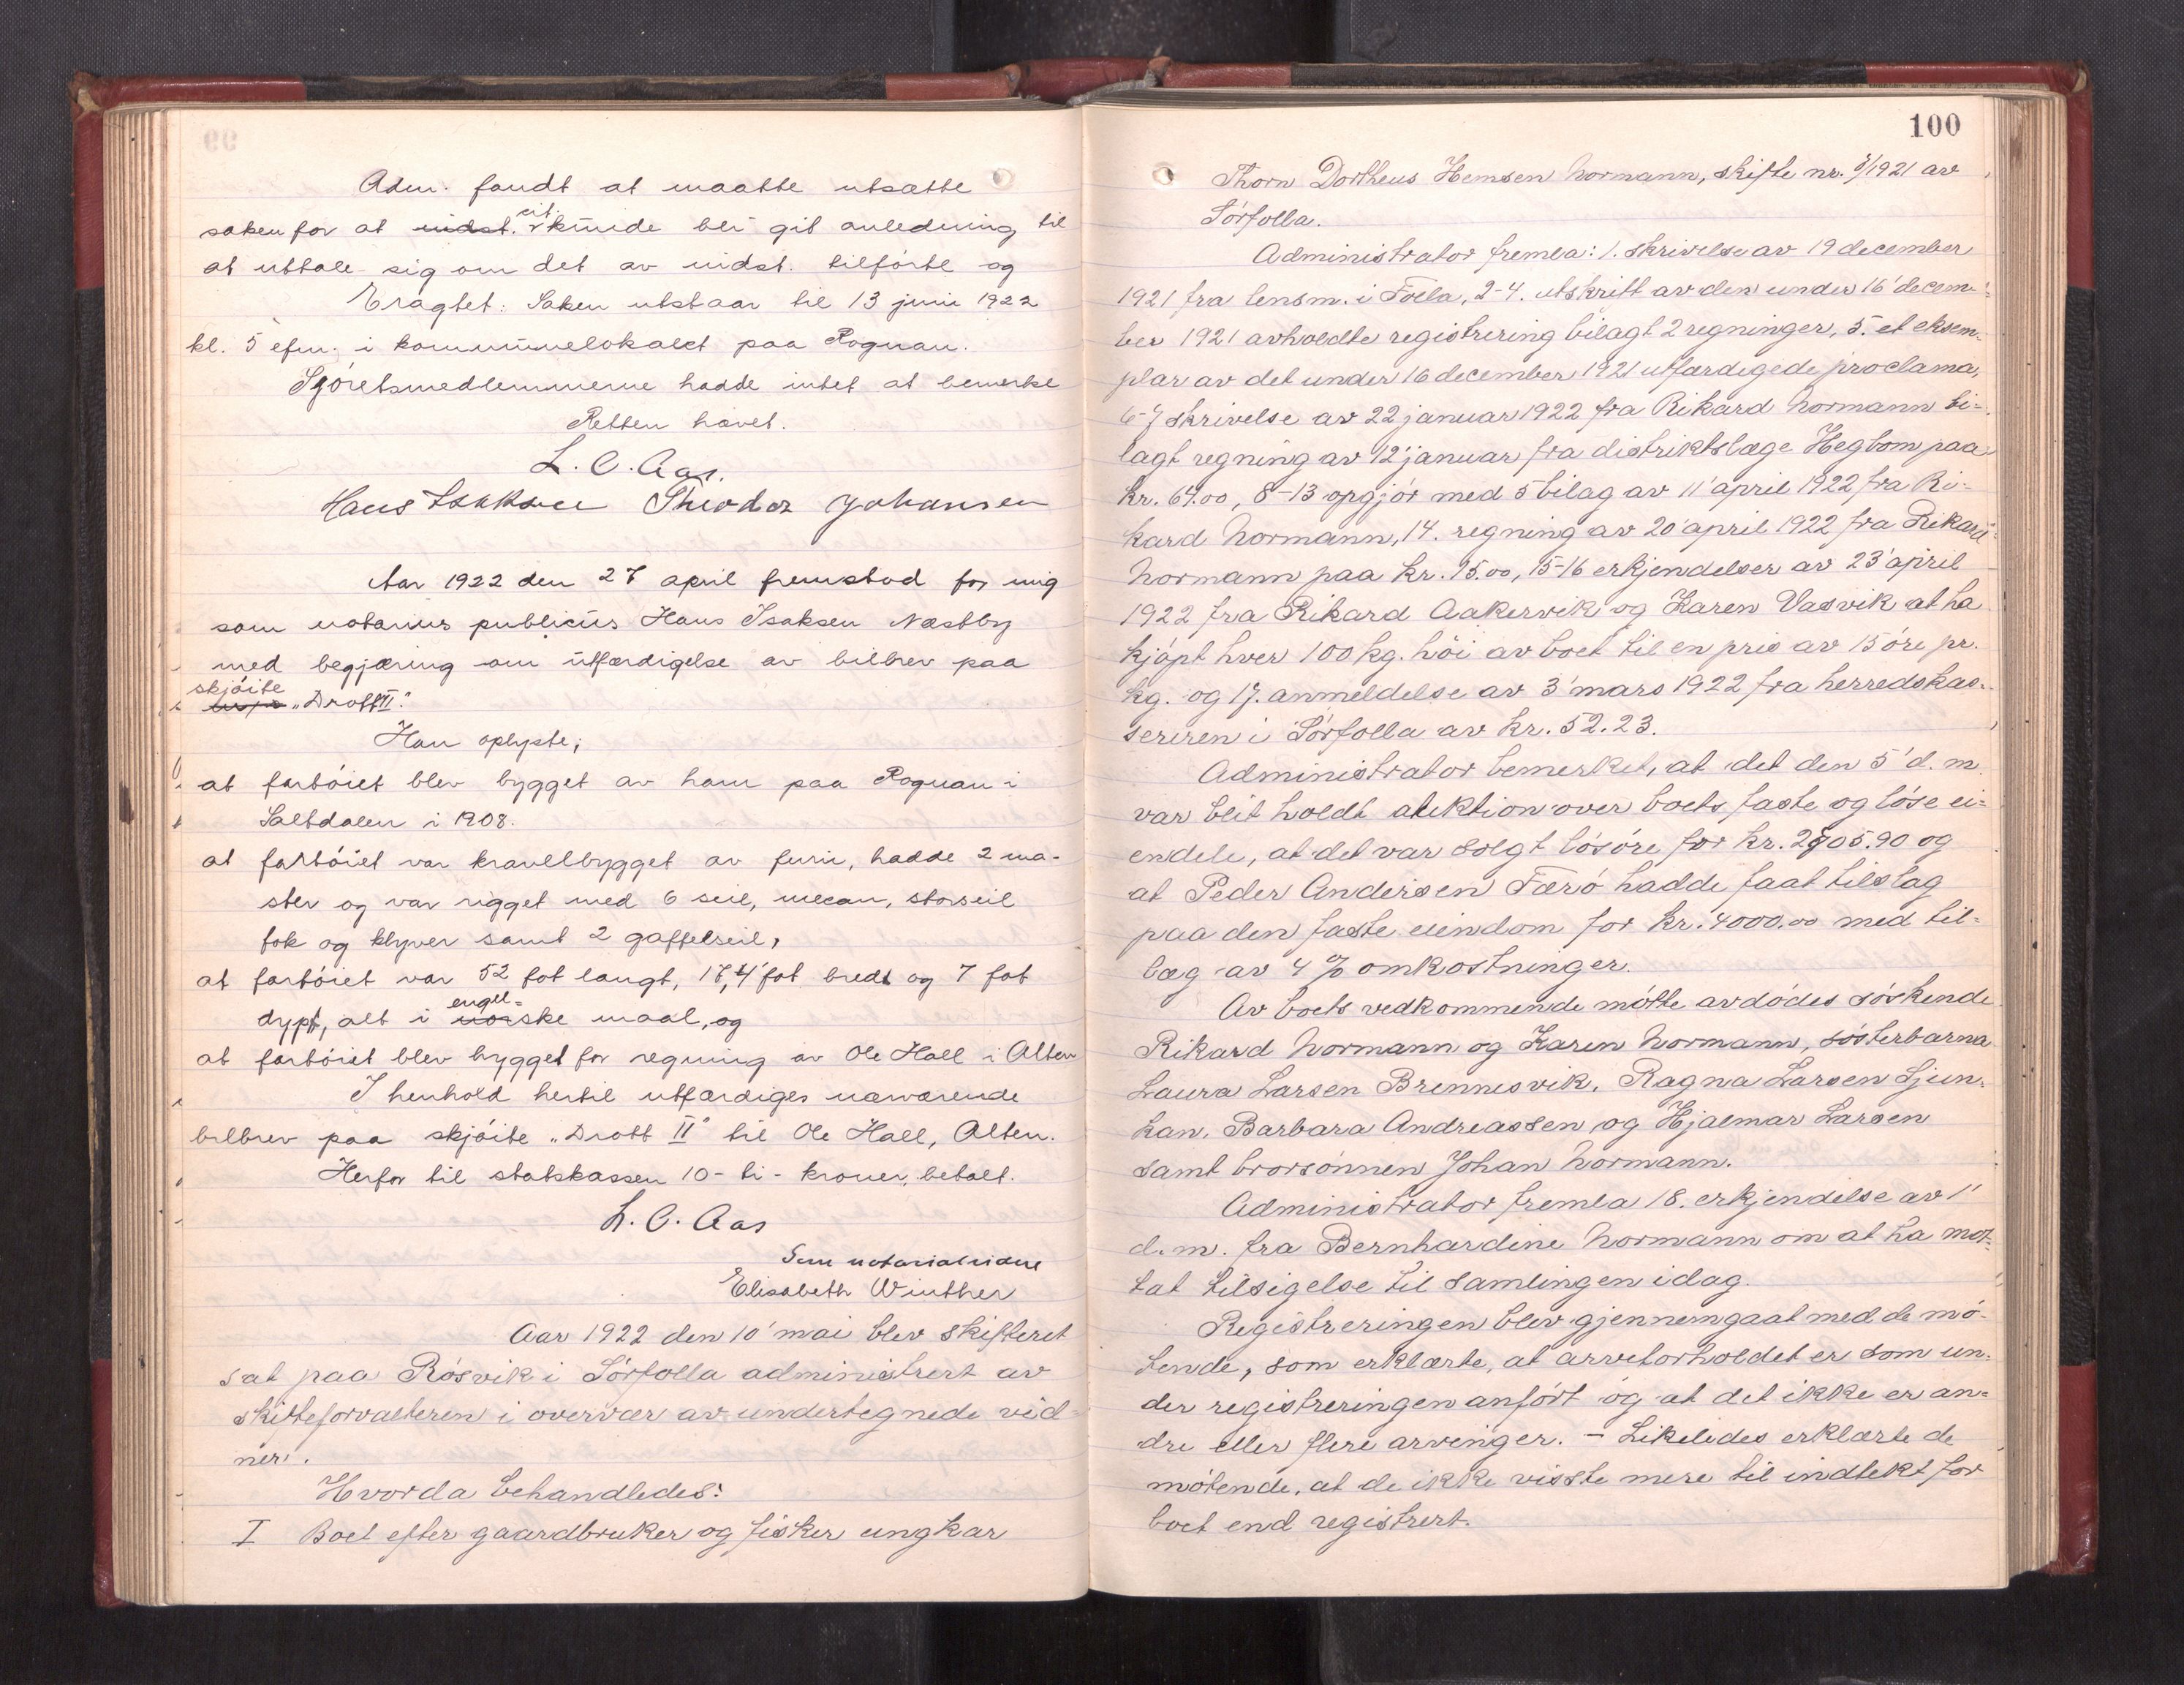 Adm. fandt at maatte utsætte
saken for at indst. cit. kunde bli git anledning til
at uttale sig om det av indst. tilførte og
Eragtet: Saken utstaar til 13 juni 1922
kl. 5 efm. i kommunelokalet paa Rognan.
Sjøretsmedlemmerne hadde intet at bemerke
Retten hævet.
L. C. Aas.
Hans Isaksen Theodor Johansen
Aar 1922 den 27 april fremstod for mig
som notarius publicus Hans Isaksen Næstby
med begjæring om utfærdigelse av bilbrev paa
skjøite
"Drott II."
Han oplyste;
at fartøiet blev bygget av ham paa Rognan i
Saltdalen i 1908.
at fartøiet var kravelbygget av furu, hadde 2 ma-
ster og var rigget med 6 seil, mesan, storseil
fok og klyver samt 2 gaffelseil,
at fartøiet var 52 fot langt, 17,4 fot bredt og 7 fot
engel=
dypt, alt i norske maal, og
at fartøiet blev bygget for regning av Ole Hall i Alten
I henhold hertil utfærdiges nærværende
bilbrev paa skjøite "Drott II" til Ole Hall, Alten.
Herfor til statskassen 10 - ti - kroner, betalt.
L. C. Aas
Som notarialvidne
Elisabeth Winther
Aar 1922 den 10' mai blev skifteret
sat paa Røsvik i Sørfolla administrert av
skifteforvalteren i overvær av undertegnede vid-
ner.
Hvorda behandledes:
I Boet efter gaardbruker og fisker ungkar
100
Thorn Dortheus Hemsen Normann, skifte nr. /1921 av
Sørfolla.
Administrator fremla: 1. skrivelse av 19 december
1921 fra lensm. i Folla, 2-4. utskrift av den under 16' decem-
ber 1921 avholdte registrering bilagt 2 regninger, 5. et eksem-
plar av det under 16 december 1921 utfærdigede proclama,
6-7 skrivelse av 22 januar 1922 fra Rikard Normann bi=
lagt regning av 12' januar fra distriktslæge Hegbom paa
kr. 69.00, 8-13 opgjør med 5 bilag av 11' april 1922 fra Ri-
kard Normann, 14. regning av 20' april 1922 fra Rikard
Normann paa kr. 15.00, 15-16 erkjendelser av 23' april
1922 fra Rikard Aakervik og Karen Vasvik at ha
kjøpt hver 100 kg. høi av boet til en pris av 15 øre pr.
kg. og 17. anmeldelse av 3' mars 1922 fra herredskas-
sereren i Sørfolla av kr. 52.23.
Administrator bemerket, at det den 5' d. m.
var blit holdt auktion over boets faste og løse ei=
endele, at det var solgt løsøre for kr. 2905.90 og
at Peder Andersen Færø hadde faat tilslag
paa den faste eiendom for kr. 4000.00 med til=
læg av 4 % omkostninger.
Av boets vedkommende møtte avdødes søskende
Rikard Normann og Karen Normann, søsterbarna
Laura Larsen Brennesvik, Ragna Larsen Ljun-
kan, Barbara Andreassen og Hjalmar Larsen
samt brorsønnen Johan Normann.
Administrator fremla 18. erkjendelse av 1'
d. m. fra Bernhardine Normann om at ha mot-
tat tilsigelse til samlingen idag.
Registreringen blev gjennemgaat med de mø-
tende, som erklærte, at arveforholdet er som un-
der registreringen anført og at det ikke er an=
dre eller flere arvinger. - Likeledes erklærte de
møtende, at de ikke visste mere til indtekt for
boet end registrert.